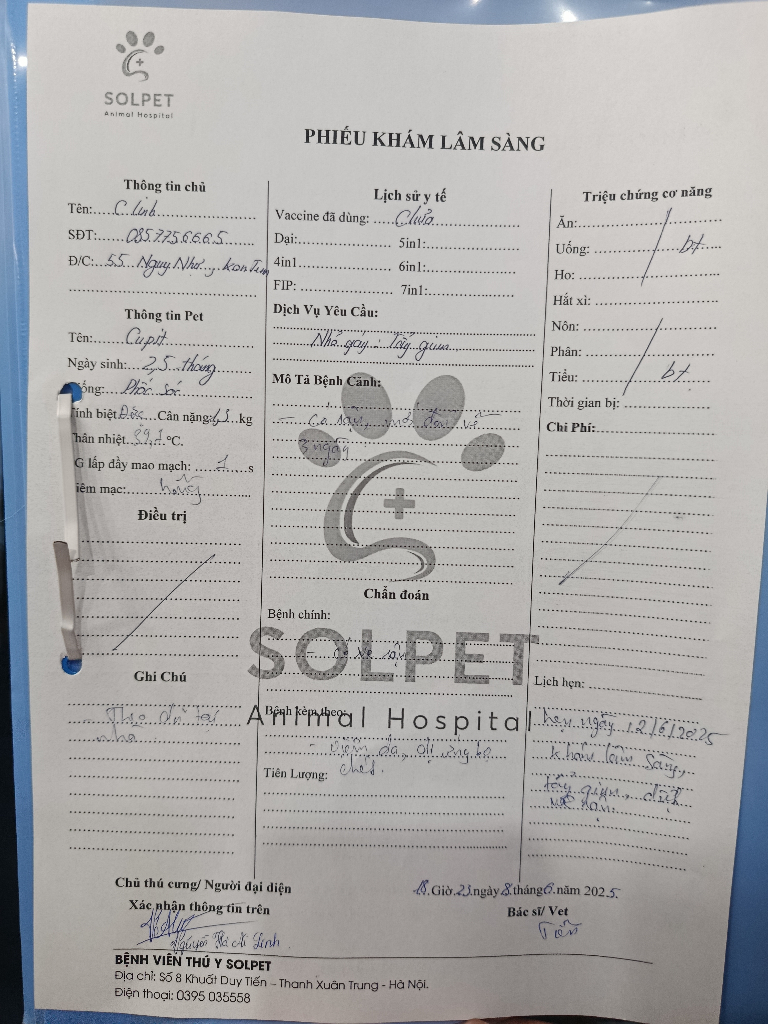 SOLPET
Animal Hospital
PHIẾU KHÁM LÂM SÀNG
Thông tin chủ
Tên: C. Linh
SĐT: 085.775.6.6.6.5
Đ/C: 55 Nguỵ Như, Kon Tum
Thông tin Pet
Tên: Cupit
Ngày sinh: 2,5 tháng
ống: Phốc Sóc
ính biệt Đực Cân nặng: kg
hân nhiệt 39,1 °C.
G lấp đầy mao mạch: 1 s
iêm mạc: hồng
Điều trị
Ghi Chú
- Theo dõi tại
nhà
Lịch sử y tế
Vaccine đã dùng: Chưa
Dại: 5in1:
4in1 6in1:
FIP: 7in1:
Dịch Vụ Yêu Cầu:
Nhỏ gáy + Tẩy giun
Mô Tả Bệnh Cảnh:
- Có rận, mới đón về
3 ngày
Chẩn đoán
Bệnh chính:
- Có ve rận
Bệnh kèm theo:
- Viêm da, dị ứng bọ
chét.
Tiên Lượng:
SOLPET
Animal Hospital
Triệu chứng cơ năng
Ăn:
Uống: bt
Ho:
Hắt xì:
Nôn:
Phân:
Tiểu: bt
Thời gian bị:
Chi Phí:
Lịch hẹn:
hẹn ngày 12/6/2025
khám lâm sàng,
tẩy giun, diệt
ve rận.
Chủ thú cưng/ Người đại diện
Xác nhận thông tin trên
18 Giờ 23 ngày 8 tháng 6 năm 2025.
Bác sĩ/ Vet
Tiến
BỆNH VIỆN THÚ Y SOLPET
Địa chỉ: Số 8 Khuất Duy Tiến – Thanh Xuân Trung - Hà Nội.
Điện thoại: 0395 035558